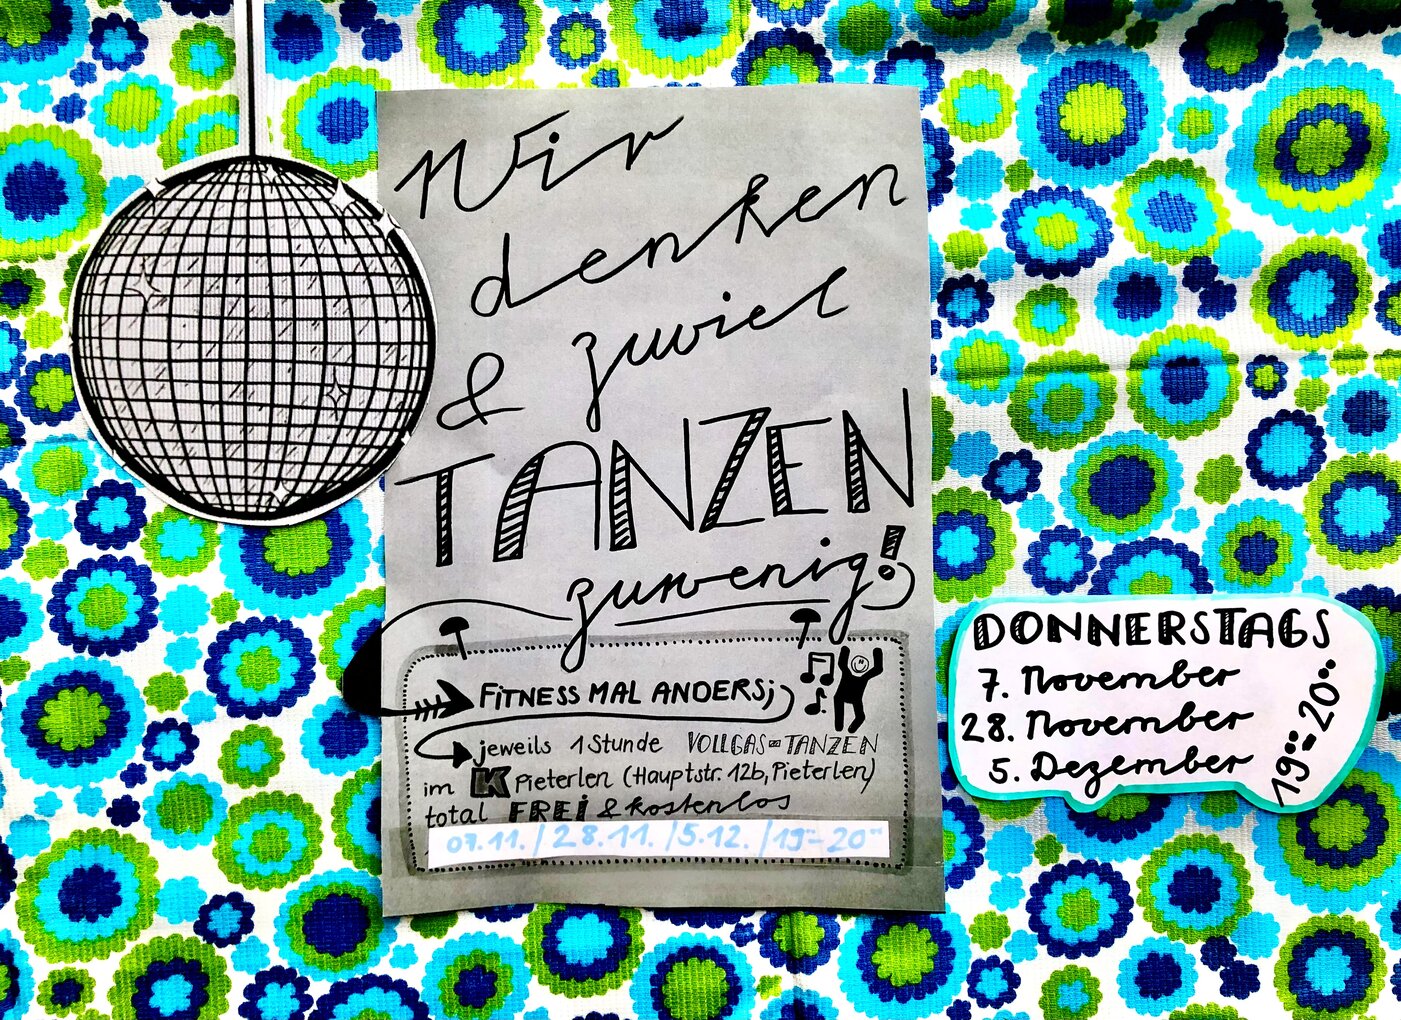 Wir
denken
& zuviel
TANZEN
zuwenig!
FiTNESS MAL ANDERS;
jeweils 1 Stunde VOLLGAS-TANZEN
im K Pieterlen (Hauptstr. 12b, Pieterlen)
total FREi & kostenlos
07.11. / 28.11. / 5.12. / 19⁰⁰-20⁰⁰
DONNERSTAGS
7. November
28. November
5. Dezember
19⁰⁰-20⁰⁰